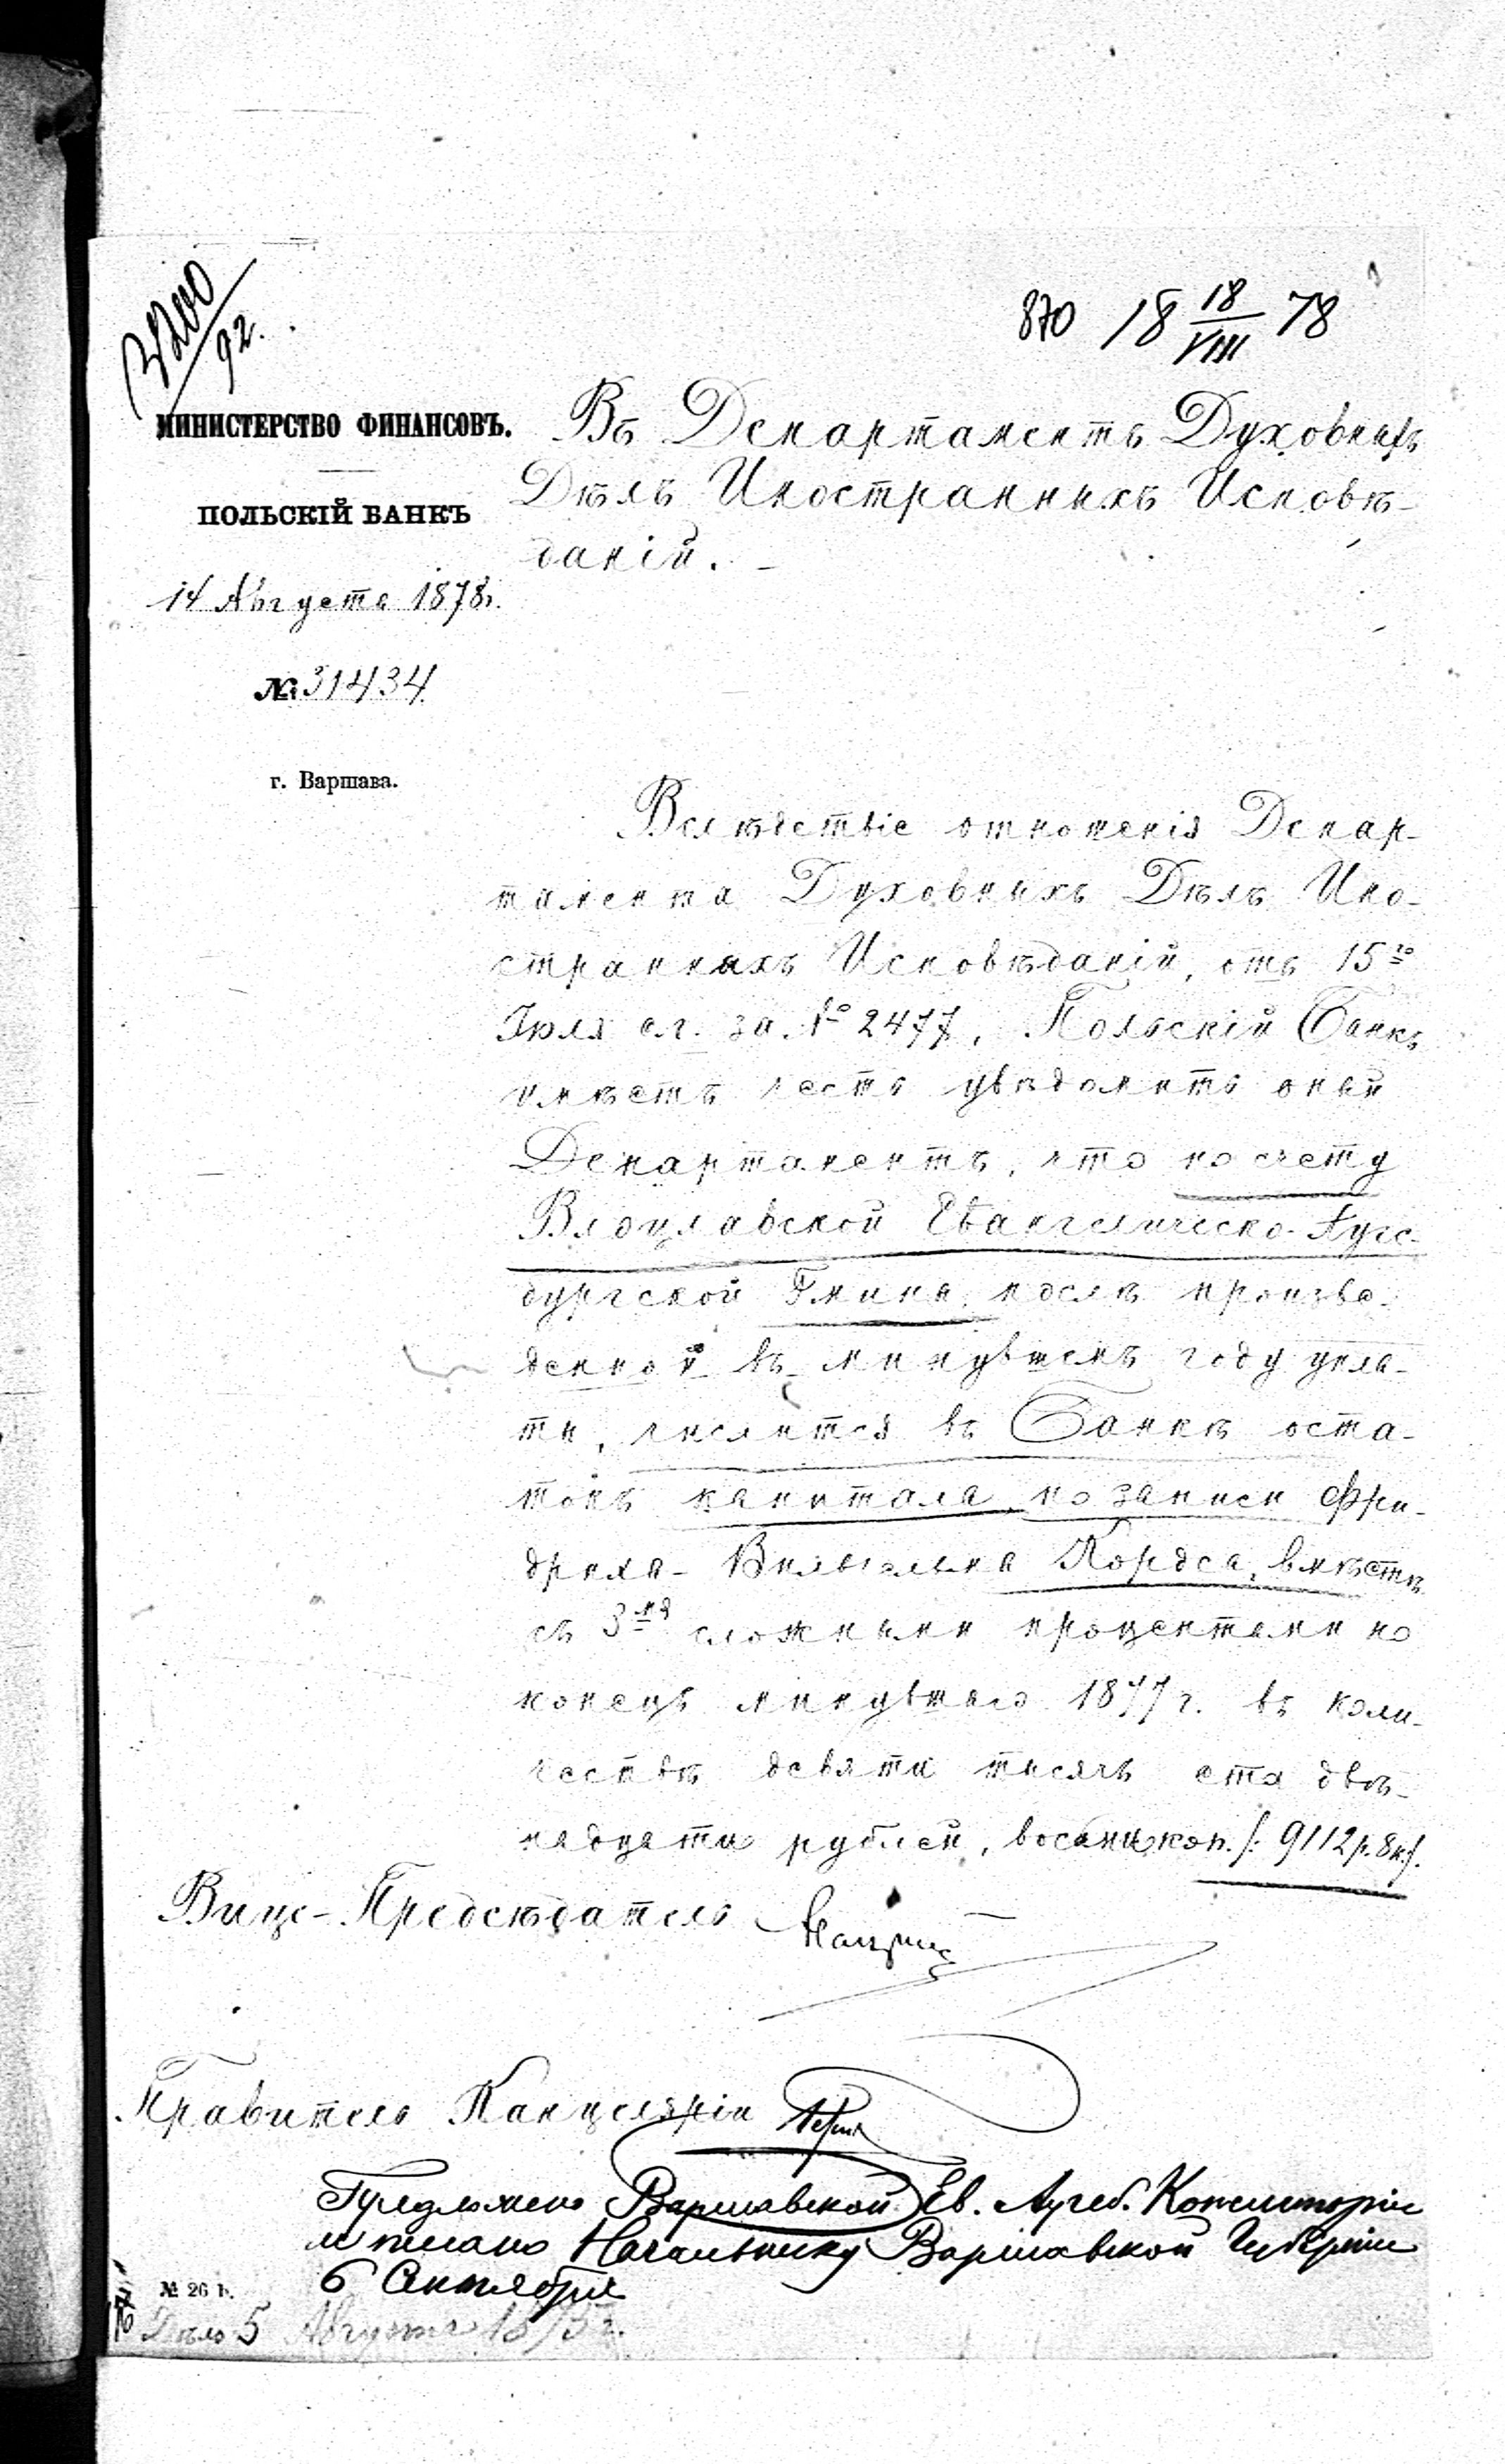 3200
92.
870 18 18/VIII 78
МИНИСТЕРСТВО ФИНАНСОВЪ.
ПОЛЬСКІЙ БАНКЪ
14 Августа 1878г.
№ 31434.
г. Варшава.
Въ Департаментъ Духовныхъ
Дѣлъ Иностранныхъ Исповѣ-
даній.
Вслѣдствіе отношенія Депар-
тамента Духовныхъ Дѣлъ Ино-
странныхъ Исповѣданій, отъ 15го
Іюля с.г. за № 2477, Польскій Банкъ
имѣетъ честь увѣдомить оный
Департаментъ, что по счету
Влоцлавской Евангелическо-Аугс-
бургской Гмины, послѣ произве-
денной въ минувшемъ году упла-
ты, числится въ Банкѣ оста-
токъ капитала, по записи Фри-
дриха-Вильгельма Кордса, вмѣстѣ
съ 3мя сложными процентами по
конецъ минувшаго 1877 г. въ коли-
чествѣ девяти тысячъ ста двѣ-
надцати рублей, восьми коп. /: 9112 р. 8 к./.
Вице-Предсѣдатель
Правитель Канцеляріи
Предложено Варшавской Ев. Аугсб. Консисторіи
и писано Начальнику Варшавской Губерніи
6 Сентября
№ 26 В.
Дѣло 5 Августа 1875 г.